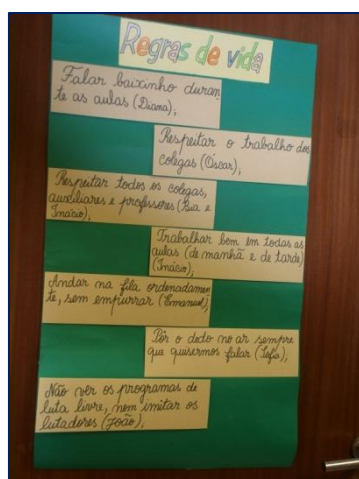 Regras de vida
Falar baixinho duran
te as aulas (Diana);
Respeitar o trabalho dos
colegas (Óscar);
Respeitar todos os colegas,
auxiliares e professores (Rua e
Inácio);
Trabalhar bem em todas as
aulas (de manhã e de tarde)
(Inácio);
Andar na fila ordenadamen
te, sem empurrar (Emanuel);
Pôr o dedo no ar sempre
que quisermos falar (Sofia);
Não ver os programas de
luta livre, nem imitar os
lutadores (João);